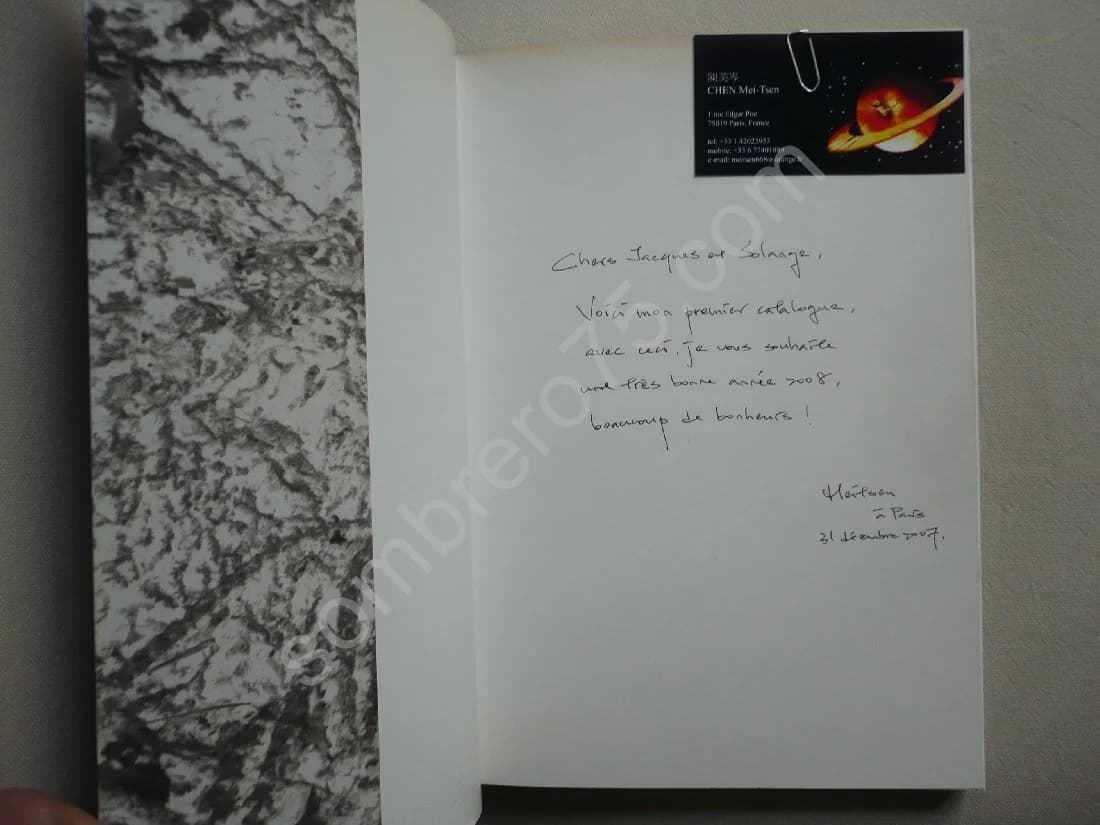 陳美岑
CHEN Mei-Tsen
1 rue Edgar Poe
75019 Paris, France
tel: +33 1 42023953
mobile: +33 6
e-mail:
Chers Jacques et Solange,
Voici mon premier catalogue,
avec ceci, je vous souhaite
une très bonne année 2008,
beaucoup de bonheurs !
Meitsen
à Paris
31 décembre 2007.
sombrero75.com